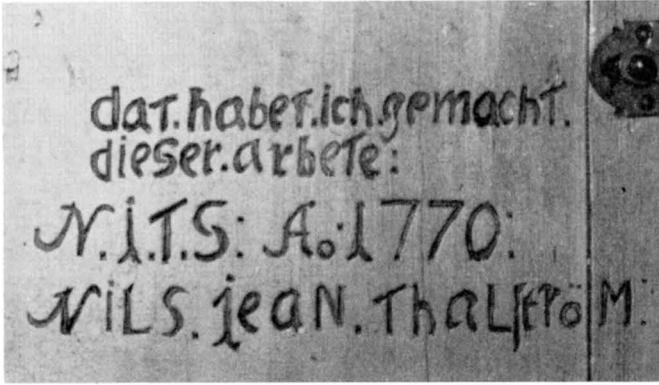 daT.habeT.ich.gemachT.
dieser.arbeTe:
N.i.T.S: Ao:1770:
NiLS.jeaN.ThaLſtröM: